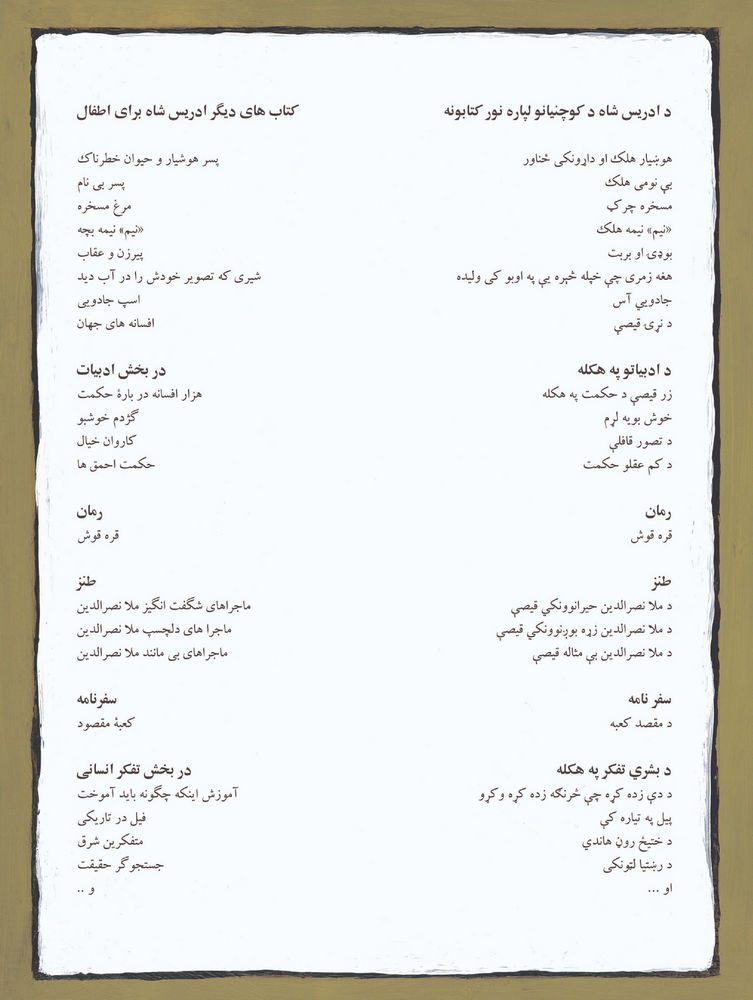 د ادریس شاه د کوچنیانو لپاره نور کتابونه
هوښیار هلک او داړونکی ځناور
بې نومی هلک
مسخره چرګ
«نیم» نیمه هلک
بوډۍ او بربت
هغه زمری چې خپله څېره یې په اوبو کی ولیده
جادويي آس
د نړۍ قیصې
د ادبیاتو په هکله
زر قیصې د حکمت په هکله
خوش بویه لړم
د تصور قافلې
د کم عقلو حکمت
رمان
قره قوش
طنز
د ملا نصرالدین حیرانوونکې قیصې
د ملا نصرالدین زړه بوږنوونکې قیصې
د ملا نصرالدین بې مثاله قیصې
سفر نامه
د مقصد کعبه
د بشري تفکر په هکله
د دې زده کړه چې څرنګه زده کړه وکړو
پیل په تیاره کې
د ختیځ روڼ هاندي
د رښتیا لټونکی
او ...
کتاب های دیگر ادریس شاه برای اطفال
پسر هوشیار و حیوان خطرناک
پسر بی نام
مرغ مسخره
«نیم» نیمه بچه
پیرزن و عقاب
شیری که تصویر خودش را در آب دید
اسپ جادویی
افسانه های جهان
در بخش ادبیات
هزار افسانه در بارۀ حکمت
گژدم خوشبو
کاروان خیال
حکمت احمق ها
رمان
قره قوش
طنز
ماجراهای شگفت انگیز ملا نصرالدین
ماجرا های دلچسپ ملا نصرالدین
ماجراهای بی مانند ملا نصرالدین
سفرنامه
کعبۀ مقصود
در بخش تفکر انسانی
آموزش اینکه چگونه باید آموخت
فیل در تاریکی
متفکرین شرق
جستجو گر حقیقت
و ..